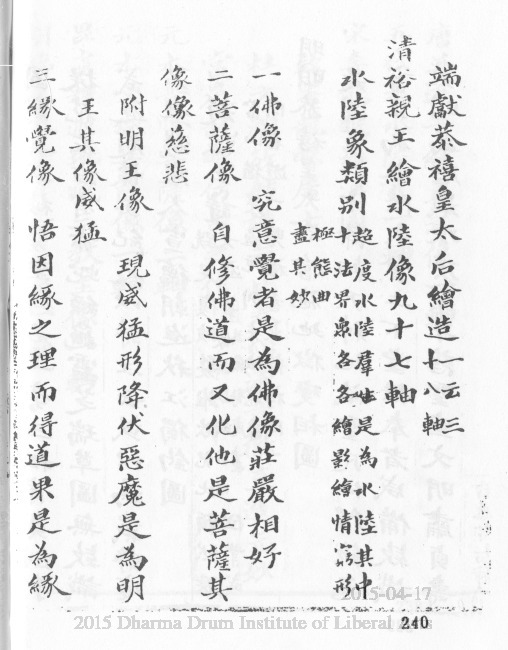 端獻恭禧皇太后繪造一云三十八軸
清裕親王繪水陸像九十七軸
水陸象類別超度水陸羣生是為水陸其中十法界衆各各繪影繪情窮形極態曲盡其妙
一佛像 究意覺者是為佛像莊嚴相好
二菩薩像 自修佛道而又化他是菩薩其
像像慈悲
附明王像 現威猛形降伏惡魔是為明
王其像威猛
三緣覺像 悟因緣之理而得道果是為緣
2015-04-17
2015 Dharma Drum Institute of Liberal Arts
240